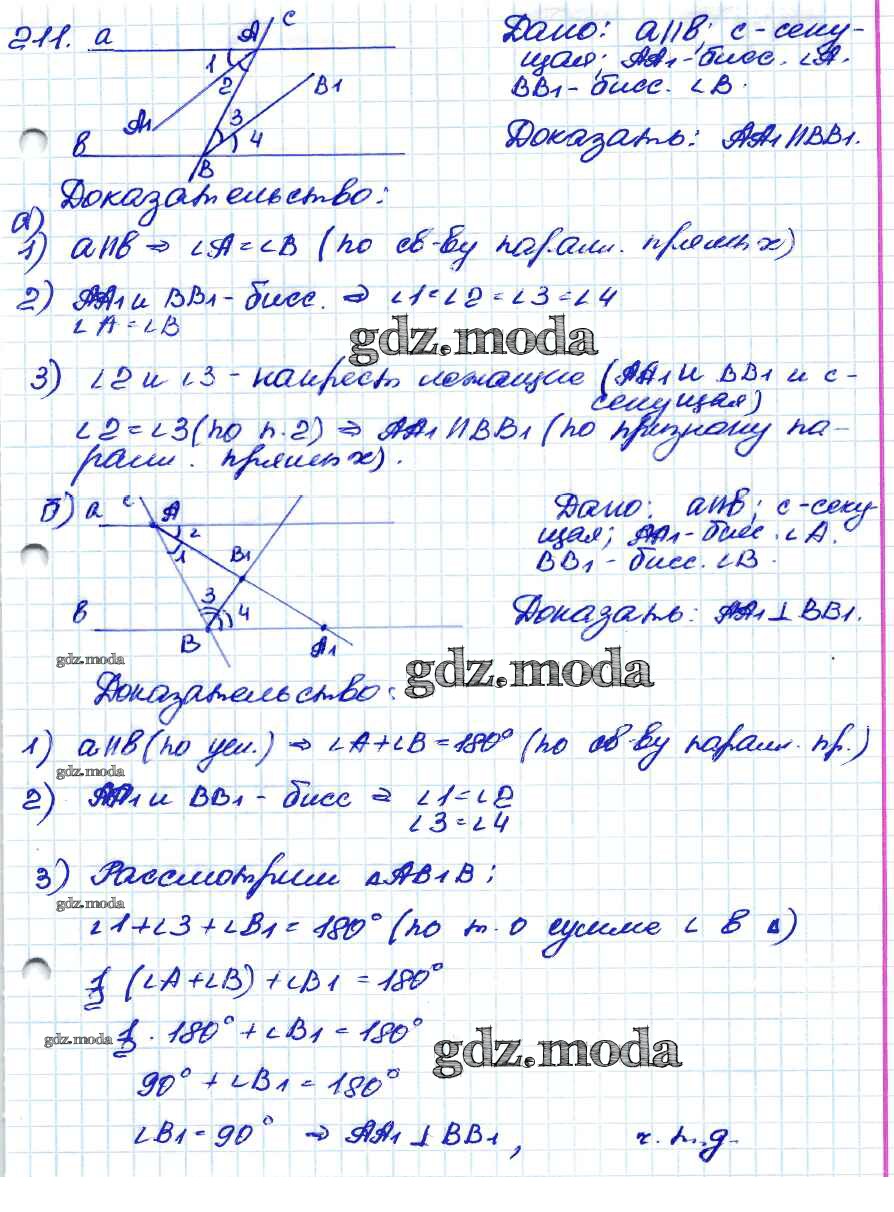 211. a A C
1 2 B1
A1 3 4
в B
Дано: a∥в; c-секу-
щая; AA1-бисс. ∠A.
BB1-бисс. ∠B.
Доказать: AA1∥BB1.
Доказательство:
а)
1) a∥в ⇒ ∠A=∠B (по св-ву паралл. прямых)
2) AA1 и BB1-бисс. ⇒ ∠1=∠2=∠3=∠4
∠A=∠B
gdz.moda
3) ∠2 и ∠3 - накрест лежащие (AA1 и BB1 и c-
секущая)
∠2=∠3 (по п.2) ⇒ AA1∥BB1 (по признаку па-
ралл. прямых).
б) a c A 2
1 B1
3 4
в B A1
Дано: a∥в; c-секу-
щая; AA1-бисс. ∠A.
BB1-бисс. ∠B.
Доказать: AA1⊥BB1.
gdz.moda
gdz.moda
Доказательство:
1) a∥в (по усл.) ⇒ ∠A+∠B=180° (по св-ву паралл. пр.)
gdz.moda
2) AA1 и BB1-бисс ⇒ ∠1=∠2
∠3=∠4
3) Рассмотрим △AB1B:
gdz.moda
∠1+∠3+∠B1=180° (по т. о сумме ∠ в △)
1/2 (∠A+∠B)+∠B1=180°
gdz.moda 1/2 · 180°+∠B1=180°
gdz.moda
90°+∠B1=180°
∠B1=90° ⇒ AA1⊥BB1, ч.т.д.